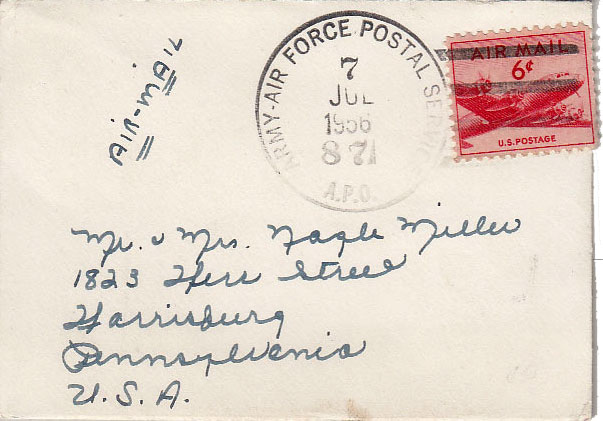 ARMY-AIR FORCE POSTAL SERVICE
7
JUL
1956
871
A.P.O.
AIR MAIL
6¢
U.S. POSTAGE
AIR-MAIL
Mr. & Mrs. Nagle Miller
1823 Herr Street
Harrisburg
Pennsylvania
U.S.A.